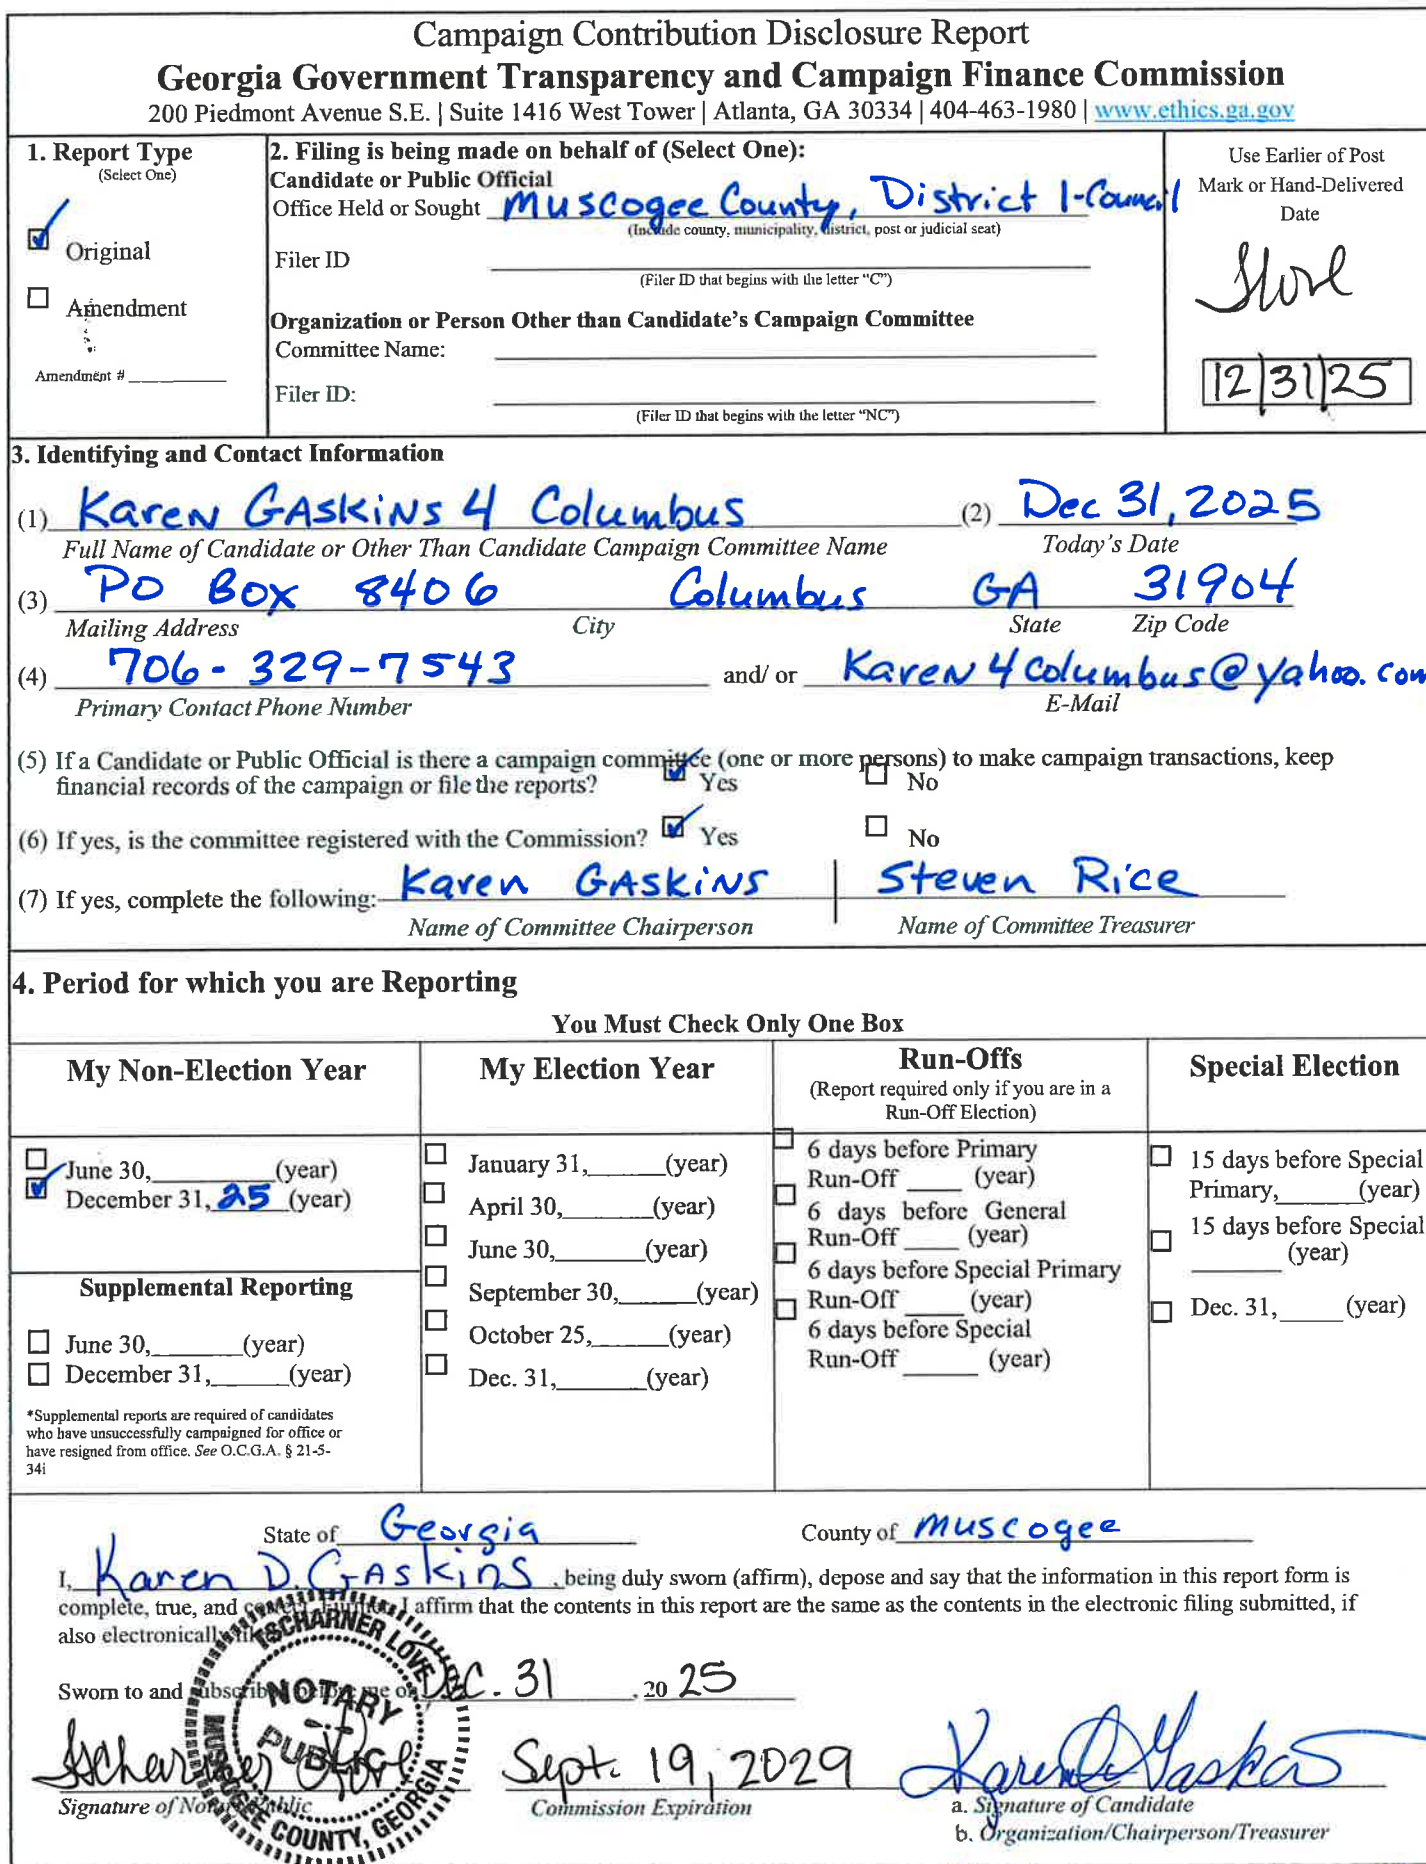 Campaign Contribution Disclosure Report
Georgia Government Transparency and Campaign Finance Commission
200 Piedmont Avenue S.E. | Suite 1416 West Tower | Atlanta, GA 30334 | 404-463-1980 | www.ethics.ga.gov
1. Report Type
(Select One)
Original
Amendment
Amendment #
2. Filing is being made on behalf of (Select One):
Candidate or Public Official
Office Held or Sought Muscogee County, District 1-Council
(Include county, municipality, district, post or judicial seat)
Filer ID
(Filer ID that begins with the letter "C")
Organization or Person Other than Candidate's Campaign Committee
Committee Name:
Filer ID:
(Filer ID that begins with the letter "NC")
Use Earlier of Post
Mark or Hand-Delivered
Date
12|31|25
3. Identifying and Contact Information
(1) Karen GASkiNS 4 Columbus (2) Dec 31, 2025
Full Name of Candidate or Other Than Candidate Campaign Committee Name Today's Date
(3) PO Box 8406 Columbus GA 31904
Mailing Address City State Zip Code
(4) 706-329-7543 and/ or Karen4Columbus@yahoo.com
Primary Contact Phone Number E-Mail
(5) If a Candidate or Public Official is there a campaign committee (one or more persons) to make campaign transactions, keep
financial records of the campaign or file the reports? Yes No
(6) If yes, is the committee registered with the Commission? Yes No
(7) If yes, complete the following: Karen GASkiNS | Steven Rice
Name of Committee Chairperson Name of Committee Treasurer
4. Period for which you are Reporting
You Must Check Only One Box
My Non-Election Year
June 30, (year)
December 31, 25 (year)
Supplemental Reporting
June 30, (year)
December 31, (year)
*Supplemental reports are required of candidates
who have unsuccessfully campaigned for office or
have resigned from office. See O.C.G.A. § 21-5-
34i
My Election Year
January 31, (year)
April 30, (year)
June 30, (year)
September 30, (year)
October 25, (year)
Dec. 31, (year)
Run-Offs
(Report required only if you are in a
Run-Off Election)
6 days before Primary
Run-Off (year)
6 days before General
Run-Off (year)
6 days before Special Primary
Run-Off (year)
6 days before Special
Run-Off (year)
Special Election
15 days before Special
Primary, (year)
15 days before Special
(year)
Dec. 31, (year)
State of Georgia County of Muscogee
I, Karen D. GASkins, being duly sworn (affirm), depose and say that the information in this report form is
complete, true, and I affirm that the contents in this report are the same as the contents in the electronic filing submitted, if
also electronically
Sworn to and subscribed before me on DEC. 31, 20 25
TSCHARNER LOVE
NOTARY
PUBLIC
MUSCOGEE COUNTY, GEORGIA
Tscharner Love Sept. 19, 2029 Karen D Gaskins
Signature of Notary Public Commission Expiration a. Signature of Candidate
b. Organization/Chairperson/Treasurer